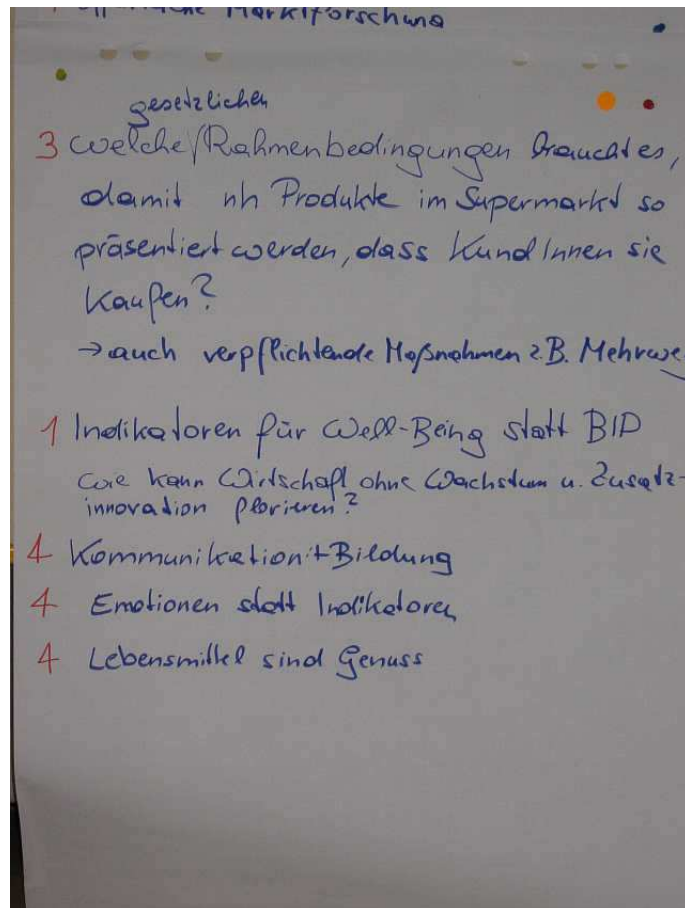 Marktforschung
gesetzlichen
3 Welche Rahmenbedingungen braucht es,
damit nh Produkte im Supermarkt so
präsentiert werden, dass KundInnen sie
kaufen?
→ auch verpflichtende Maßnahmen z.B. Mehrwe
1 Indikatoren für Well-Being statt BIP
Wie kann Wirtschaft ohne Wachstum u. Zusatz-
innovation florieren?
4 Kommunikation + Bildung
4 Emotionen statt Indikatoren
4 Lebensmittel sind Genuss